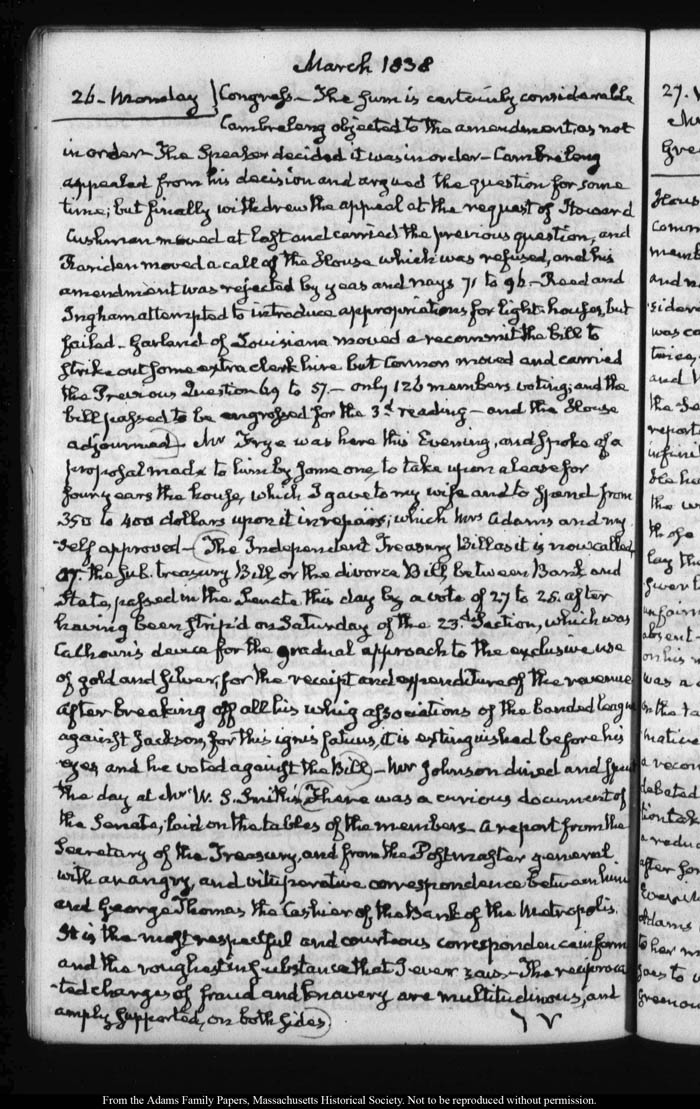 March 1838
26. Monday } Congress - The sum is certainly considerable
Cambreleng objected to the amendment, as not
in order - The Speaker decided it was in order - Cambreleng
appealed from his decision and argued the question for some
time; but finally withdrew the appeal at the request of Howard
Cushman moved at last and carried the previous question, and
Rariden moved a call of the House which was refused, and his
amendment was rejected by yeas and nays 71 to 96 - Reed and
Ingham attempted to introduce appropriations for light-houses, but
failed - Garland of Louisiana moved a recommit the bill to
strike out some extra clerk hire but Connor moved and carried
the Previous Question 69 to 57. - only 126 members voting; and the
bill passed to be engrossed for the 3d reading - and the House
adjourned - Mr Frye was here this Evening, and spoke of a
proposal made to him by some one, to take upon a lease for
four years the house, which I gave to my wife and to spend from
350 to 400 dollars upon it in repairs; which Mrs Adams and my-
self approved - The Independent Treasury Bill as it is now called
or the Sub-treasury Bill, or the divorce Bill between Bank and
State, passed in the Senate this day by a vote of 27 to 25. after
having been strip'd on Saturday of the 23d Section, which was
Calhoun's device for the gradual approach to the exclusive use
of gold and silver, for the receipt and expenditure of the revenue
after breaking off all his whig associations of the banded league
against Jackson, for this ignis fatuus, it is extinguished before his
eyes and he voted against the Bill - Mr Johnson dined and spent
the day at Mr W. S. Smith's. There was a curious document of
the Senate, laid on the tables of the members - A report from the
Secretary of the Treasury, and from the Postmaster general
with an angry, and vituperative correspondence between him
and George Thomas the Cashier of the Bank of the Metropolis.
It is the most respectful and courteous correspondence in form
and the roughest in substance that I ever saw. - The reciproca-
-ted charges of fraud and knavery are multitudinous, and
amply supported, on both sides
27.
From the Adams Family Papers, Massachusetts Historical Society. Not to be reproduced without permission.